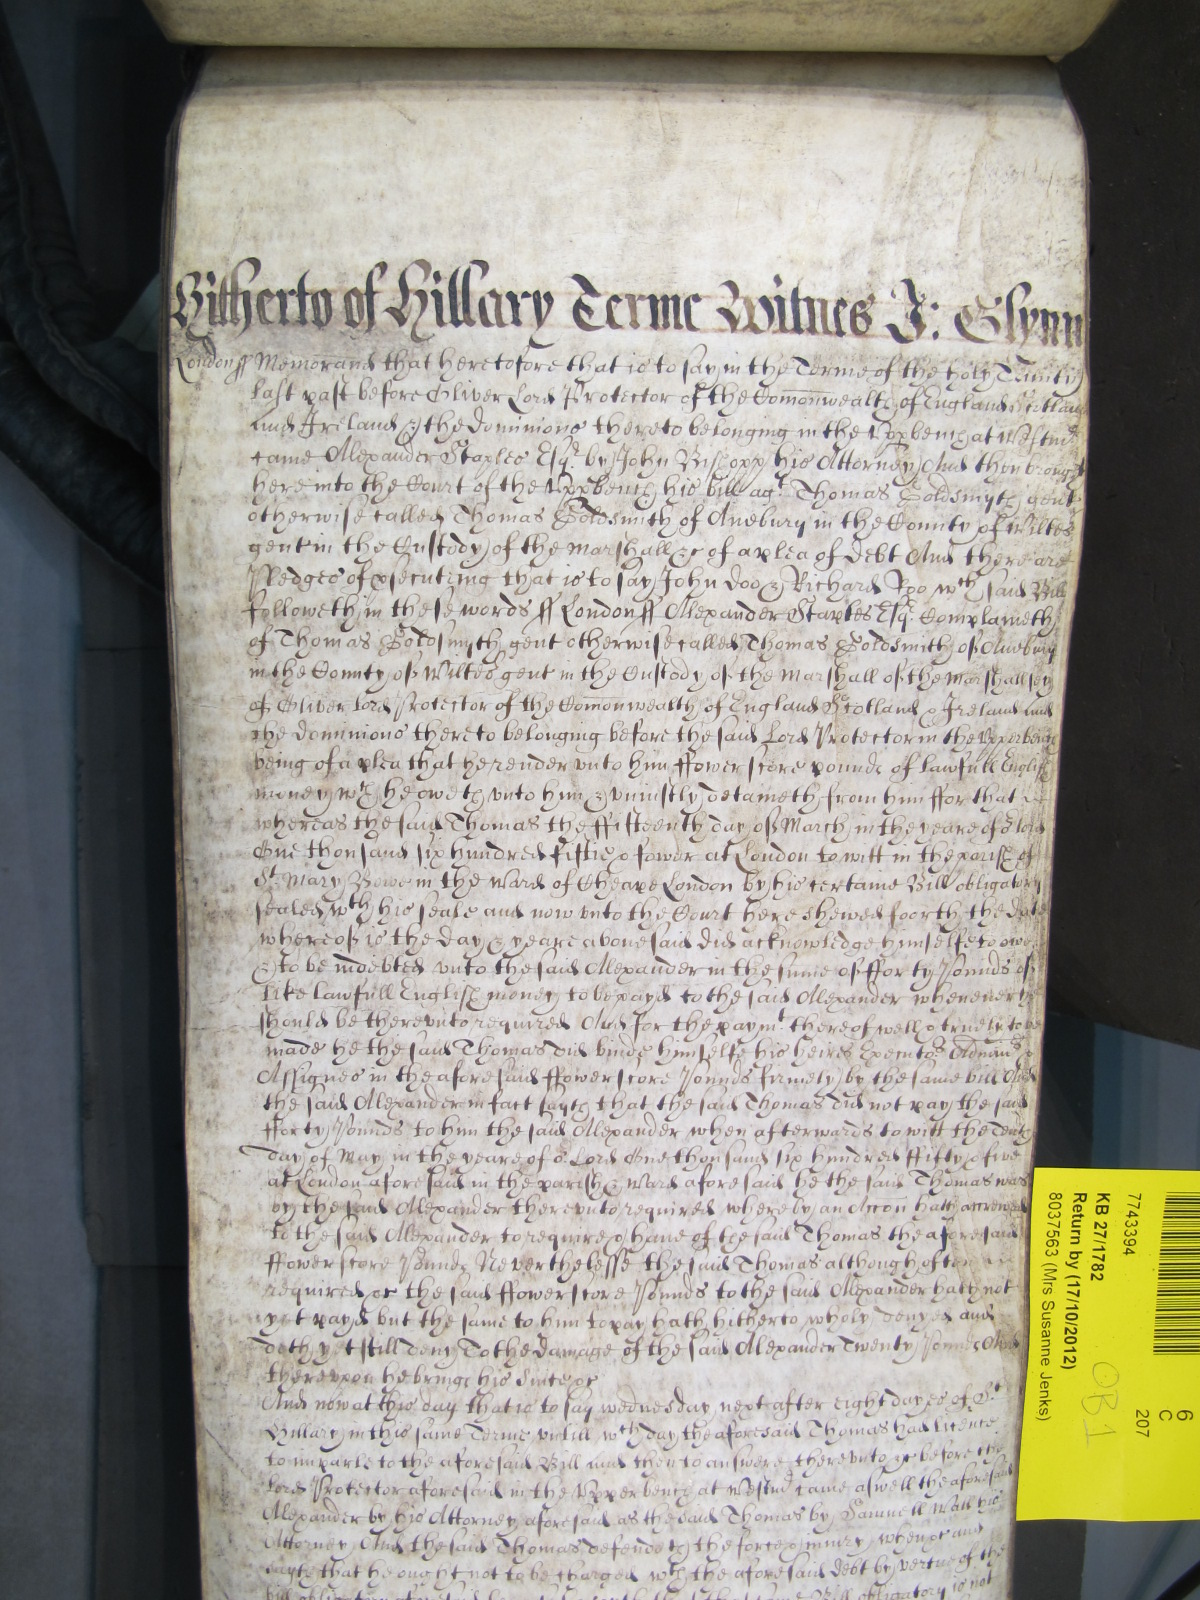 Hitherto of Hillary Terme Witnes J: Glynn
London ss Memorand that heretofore that is to say in the Terme of the holy Trinity
last past before Oliver Lord Protector of the Comonwealth of England Scotland
and Ireland & the dominions thereto belonging in the Vpp bench at Westmr
came Alexander Staples Esqr. by John Bishopp his Attorney And then brought
here into the Court of the Vppbench his bill agt. Thomas Goldsmyth gent
otherwise called Thomas Goldsmith of Auebury in the County of Wiltes
gent in the Custody of the Marshall &c of a plea of debt And there are
Pledges of psecuting that is to say John Doo & Richard Roo wch said Bill
followeth in these words ss London ss Alexander Staples Esqr. Complaineth
of Thomas Goldsmyth gent otherwise called Thomas Goldsmith of Auebury
in the County of Wiltes gent in the Custody of the Marshall of the Marshallsey
of Oliver Lord Protector of the Comonwealth of England Scotland & Ireland and
the dominions thereto belonging before the said Lord Protector in the Vpperbench
being of a plea that he render vnto him ffower score pounds of lawfull English
money wch he oweth vnto him & vniustly detaineth from him ffor that
whereas the said Thomas the ffifteenth day of March in the yeare of or Lord
One thousand six hundred fiftie & fower at London to witt in the parish of
St. Mary Bowe in the Ward of Cheape London by his certaine Bill obligatory
sealed wth his seale and now vnto the Court here shewed foorth the date
whereof is the day & yeare abouesaid did acknowledge himselfe to owe
& to be indebted vnto the said Alexander in the sume of fforty Pounds of
like lawfull English money to be payd to the said Alexander whenever he
should be therevnto required And for the paymt. thereof well & truely to be
made he the said Thomas did binde himselfe his heires Executors Adminrs &
Assignes in the aforesaid ffower score Pounds firmely by the same bill And
the said Alexander in fact sayth that the said Thomas did not pay the said
fforty Pounds to him the said Alexander when afterwards to witt the Tenth
day of May in the yeare of or Lord One thousand six hundred ffifty & five
at London aforesaid in the parish & Ward aforesaid he the said Thomas was
by the said Alexander therevnto required whereby an Accon hath accrewed
to the said Alexander to require & have of the said Thomas the aforesaid
ffower score Pounds Neverthelesse the said Thomas although often
required &c the said ffower score Pounds to the said Alexander hath not
yet payd but the same to him to pay hath hitherto wholy denyed and
doth yet still deny To the damage of the said Alexander Twenty Pounds And
therevpon he brings his Suite &c
And now at this day that is to say wednesday next after eight dayes of St.
Hillary in this same Terme vntill wch day the aforesaid Thomas had licence
to imparle to the aforesaid Bill and then to answere therevnto &c before the
Lord Protector aforesaid in the Vpperbench at Westmr came aswell the aforesaid
Alexander by his Attorney aforesaid as the said Thomas by Samuell Wall his
Attorney And the said Thomas defendeth the force & iniury when &c and
sayth that he ought not to be charged wth the aforesaid debt by vertue of the
bill obligatory Bill obligatory is not
7743394
KB 27/1782
Return by (17/10/2012)
8037563 (Mrs Susanne Jenks)
6
C
207
OB 1